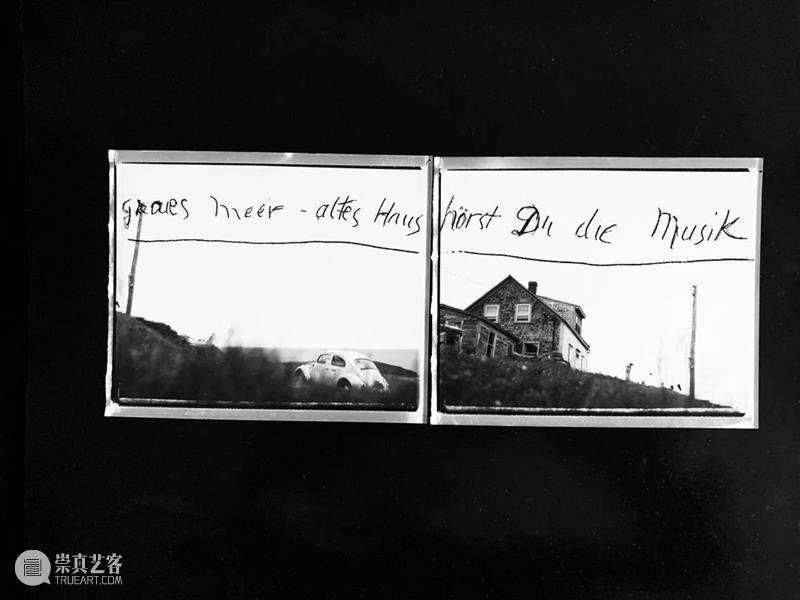 graues meer - altes Haus hörst Du die Musik
崇真艺客
TRUEART.COM